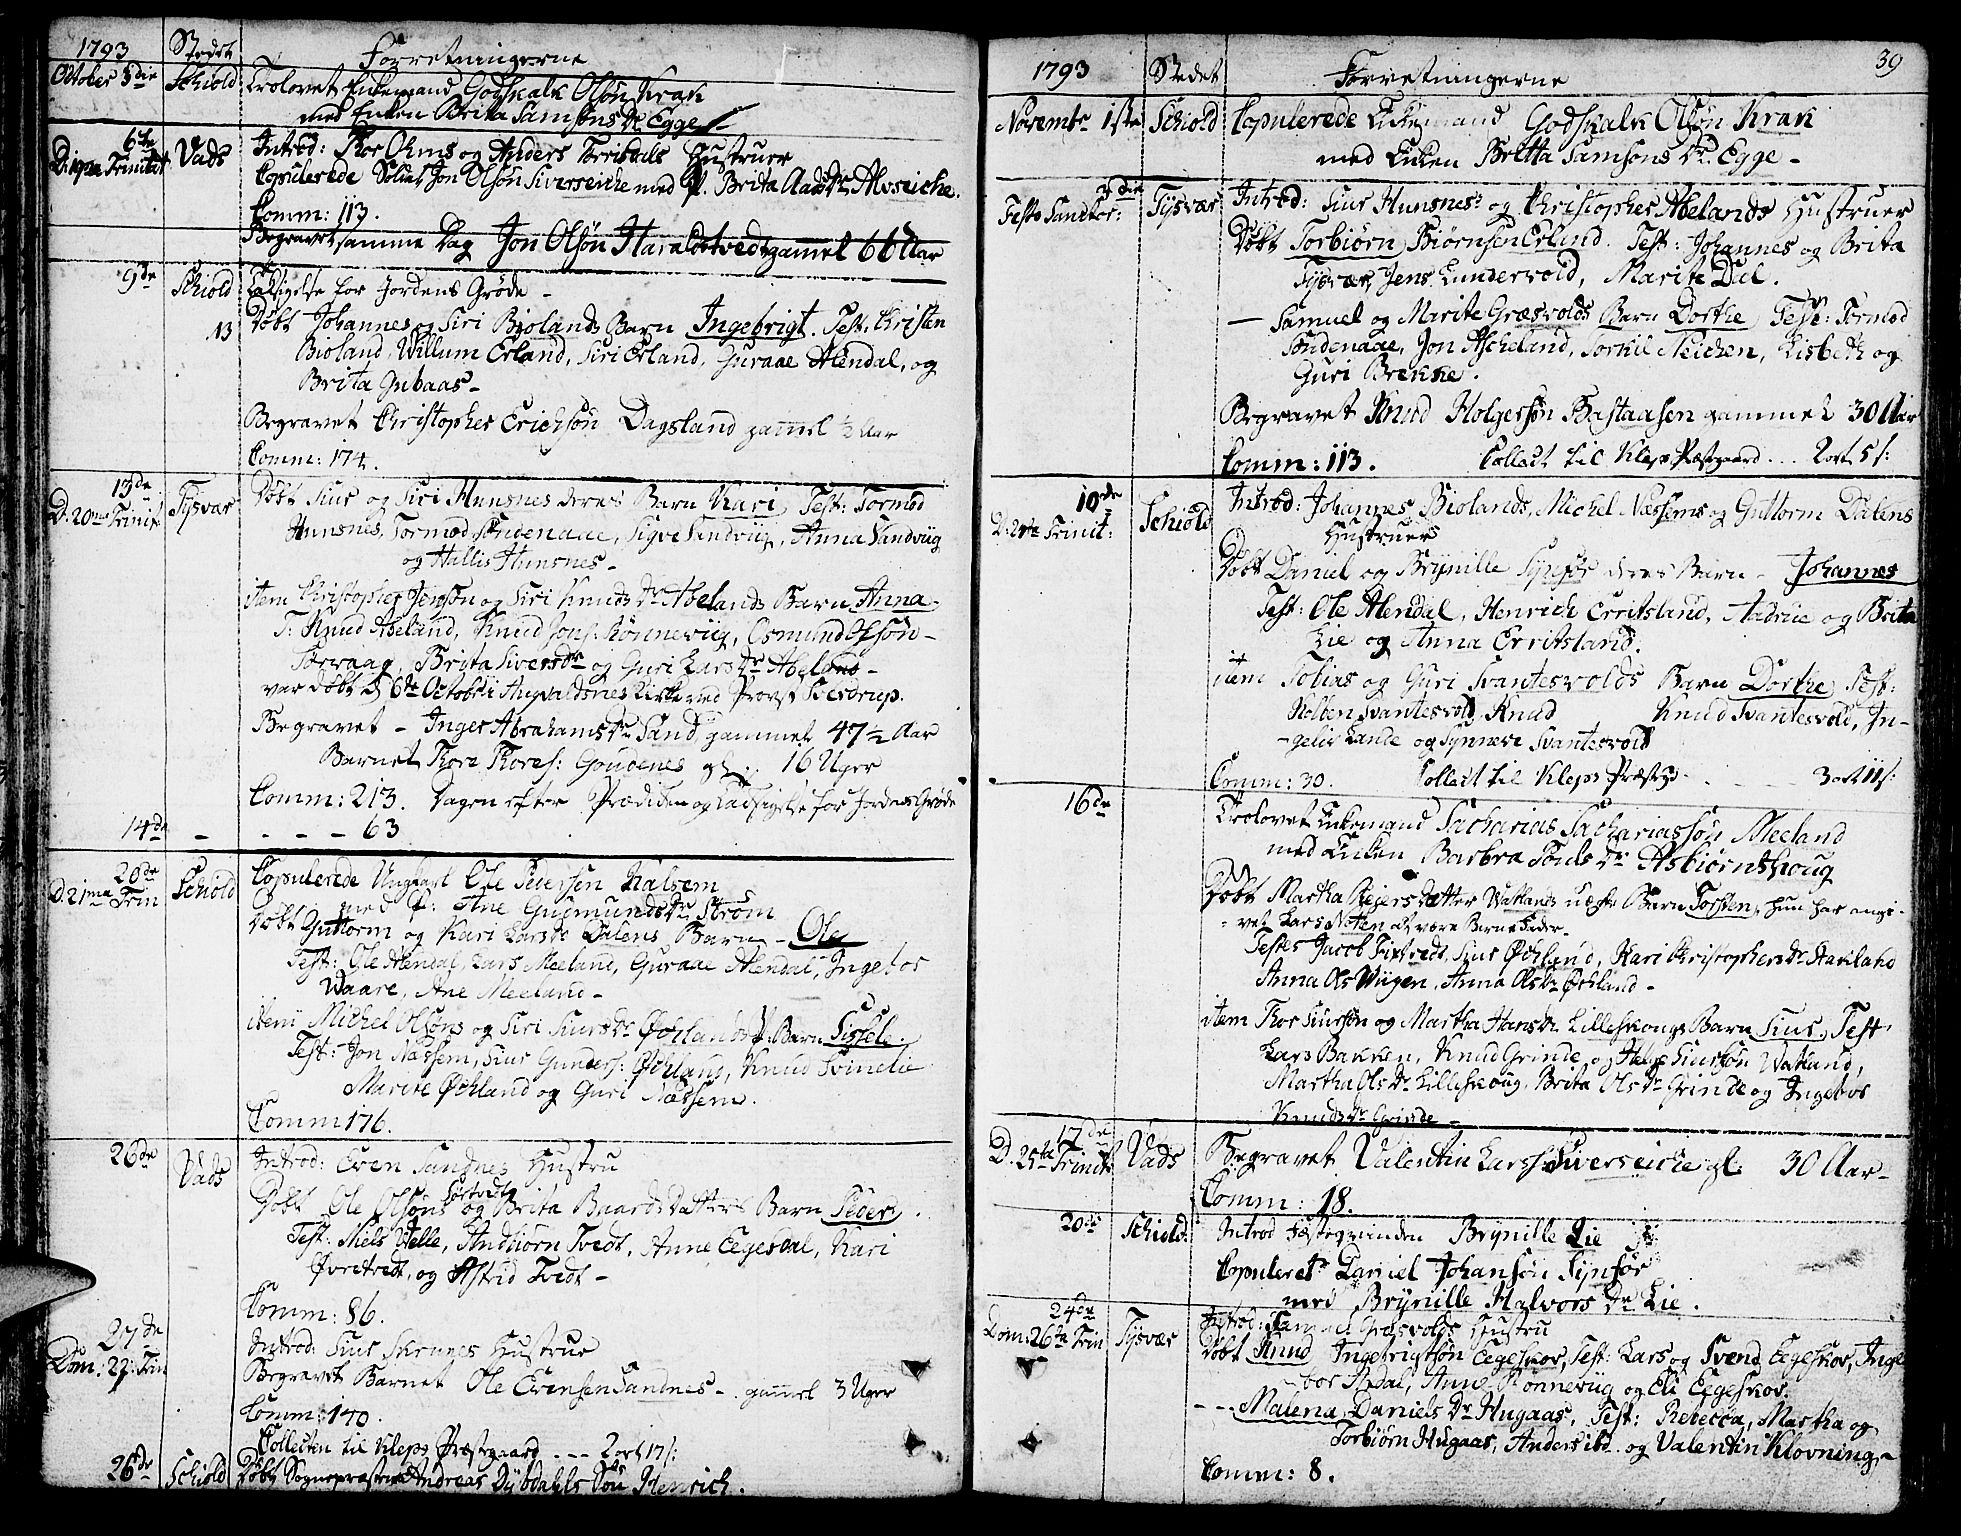 1793 Stedet Forretningerne
October 3die Schiold Trolovet Enkemand Godskalk Olsøn Krak
med Enken Brita Samsons Dr Egge
6te D: 19na Trinitat Vads Introd: Thor Ohms og Anders Torrisdals Hustruer
Copulerede Soldat Jon Olsøn Siverseiche med P. Brita Aads Dr Alvseiche.
Comm: 113.
Begravet samme Dag Jon Olsøn Haraldstvedt gamel 66 Aar
9de Schiold Taksigelse for Jordens Grøde
13 Døbt Johannes og Siri Biolands Barn Ingebrigt. Test: Christen
Bioland, Willum Erland, Siri Erland, Guraae Alendal, og
Brita Gubaas
Begravet Christopher Erichsøn Dagsland gamel ½ Aar
Comm: 174.
13de D: 20me Trinit: Tysvær Døbt Siur og Siri Hunsnes deres Barn Kari Test: Tormod
Hunsnes, Tormod Søndenaae, Sigve Sandviig, Anna Sandviig
og Hallis Hunsnes
item Christopher Jensøn og Siri Knuds Dr Abelands Barn Anna
T: Knud Abeland, Knud Jons: Rønneviig, Osmund Olsøn
Førvaag, Brita Sivers Dr og Guri Lars Dr Abeland
var døbt d 6te Octobr i Augvaldsnes Kirke ved Provst
Begravet - Inger Abrahams Dr Sand gammel 47½ Aar
Barnet Thore Thores: Goudenes gl: 16 Uger
Comm: 213. Dagen efter Prædiken og Taksigelse for Jordens Grøde
14de - - - - 63
20de D. 21ma Trin Schiold Copulerede Ungkarl Ole Pedersen Kalsem
med P: Ane Gugmunds Dr Strøm
Døbt Guttorm og Kari Lars Dr Dalens Barn - Ole
Test: Ole Alendal, Lars Meeland, Guraae Alendal, Ingebor
Waare, Ane Meeland
item Michel Olsøns og Siri Siurs Dr Øchlands Barn Sissele.
Test: Jon Næssem, Siur Gunders: Øchland, Knud Svinelie
Marite Øchland og Guri Næssem.
Comm 176.
26de Vads Introd: Even Sandnes Hustru
Døbt Ole Olsøns og Brita Baards Datters Barn Peder
Test: Niels Helle, Andbiørn Tvedt, Anne Eegesdal, Kari
Øvretvedt, og Astrid Tvedt
Comm: 86.
27de Dom. 22: Trin Introd: Siur Skrunes Hustrue
Begravet Barnet Ole Evensen Sandnes - gamel 3 Uger
Comm: 140.
Collecten til Kleps Præstgaard - - - 2 ort 17 s:
26de Schiold Døbt Sognepræsten Andreas Dybdahls Søn Henrich.
39
1793 Stedet Forretningerne
Novembr 1ste Schiold Copulerede Enkemand Godskalk Olsøn Krak
med Enken Britta Samsons Dr Egge
3die Festo Sanctor: Tysvær Introd: Siur Hunsnes og Christopher Abelands Hustruer
Døbt Torbiørn Biørnsen Erland. Test: Johannes og Brita
Tysvær, Jens Lundervold, Marite Dul.
Samuel og Marite Græsvolds Barn Dorthe Test: Tormod
Søndenaae, Jon Ascheland, Torkil Teichen, Lisbeth og
Guri Brekke.
Begravet Knud Holgersøn Bastaasen gammel 30 Aar
Comm: 113. Collect til Kleps Præstgaard ... 2 ort 5 s:
10de D: 24de Trinit: Schiold Introd: Johannes Biolands, Michel Næssems og Guttorm Dalens
Hustruer
Døbt Daniel og Brynille Synfør deres Barn - Johannes
Test: Ole Alendal, Henrich Erritsland, Aadrue og Brita
Lie og Anna Erritsland.
item Tobias og Guri Svantesvolds Barn Dorthe Test:
Holben Svantesvold, Knud Knud Svantesvold, In-
gelev Lande og Synneve Svantesvold
Comm: 30. Collect til Kleps Præstgd - - - 3 ort 11 s:
16de Trolovet Enkemand Sacharias Sachariassøn Meeland
med Enken Barbra Pouls Dr Asbiørnshoug
Døbt Martha Reiers Datter Watlands uægte Barn Torsten, hun har angi-
vet Lars Noten at være Barne Fader.
Testes Jacob Tixtvedt, Siur Øchland, Kari Christophers Dr Haviland
Anna Ols Wiigen, Anna Ols Dr Øchland
item Thor Siursøn og Martha Hans Dr Lilleskougs Barn Siur, Test
Lars Bakken, Knud Grinde, og Helge Siursøn Watland,
Martha Ols Dr Lilleskoug, Brita Ols Dr Grinde og Ingebor
Knuds Dr Grinde
17de D. 25ta Trinit Vads Begravet Valentin Larss: Siverseiche gl. 30 Aar
Comm: 18.
20de Schiold Introd Festeqvinden Brynille Lie
Copuleret Daniel Johansøn Synfør
med Brynille Halvors Dr Lie.
24de Dom: 26te Trin Tysvær Introd: Samuel Græsvolds Hustru
Døbt Knud Ingebrigtsøn Eegeskov, Test: Lars og Svend Eegeskov, Inge
bor Ardal, Anne Rønneviig og Eli Eegeskov.
- - - Malena Daniels Dr Hugaas, Test: Rebecca, Martha og
Torbiørn Hugaas, Anders ibd. og Valentin Klovning
Comm: 8.